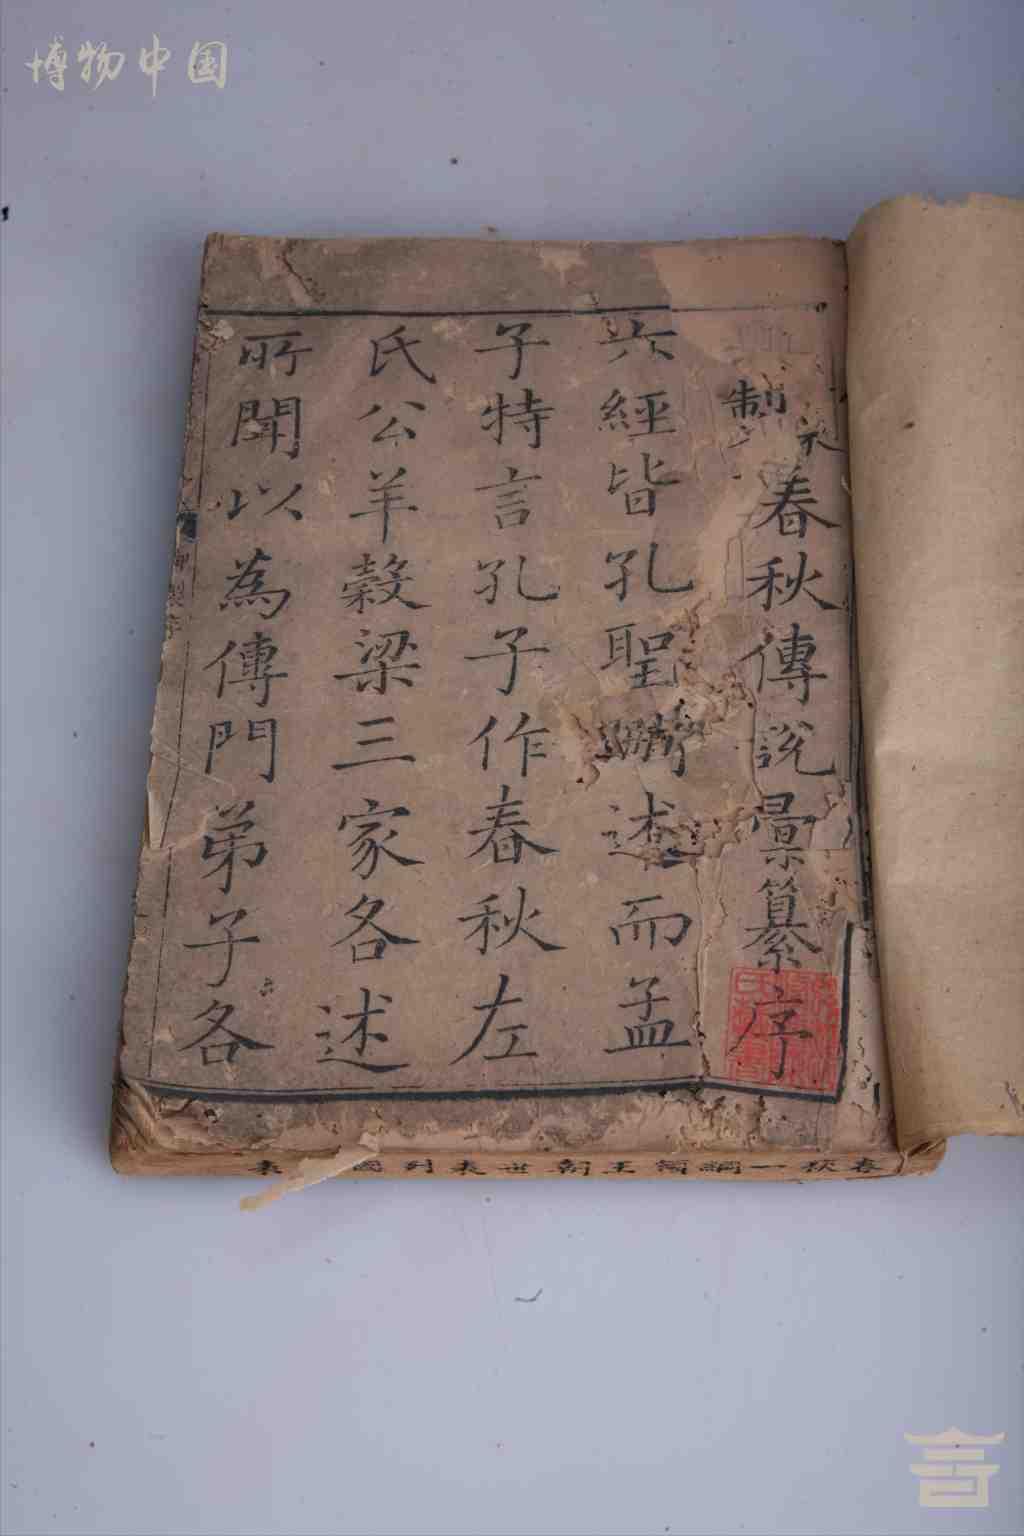 博物中国
製春秋傳說彙纂序
六經皆孔聖刪述而孟
子特言孔子作春秋左
氏公羊穀梁三家各述
所聞以為傳門弟子各
春秋一綱領王朝世表列國表